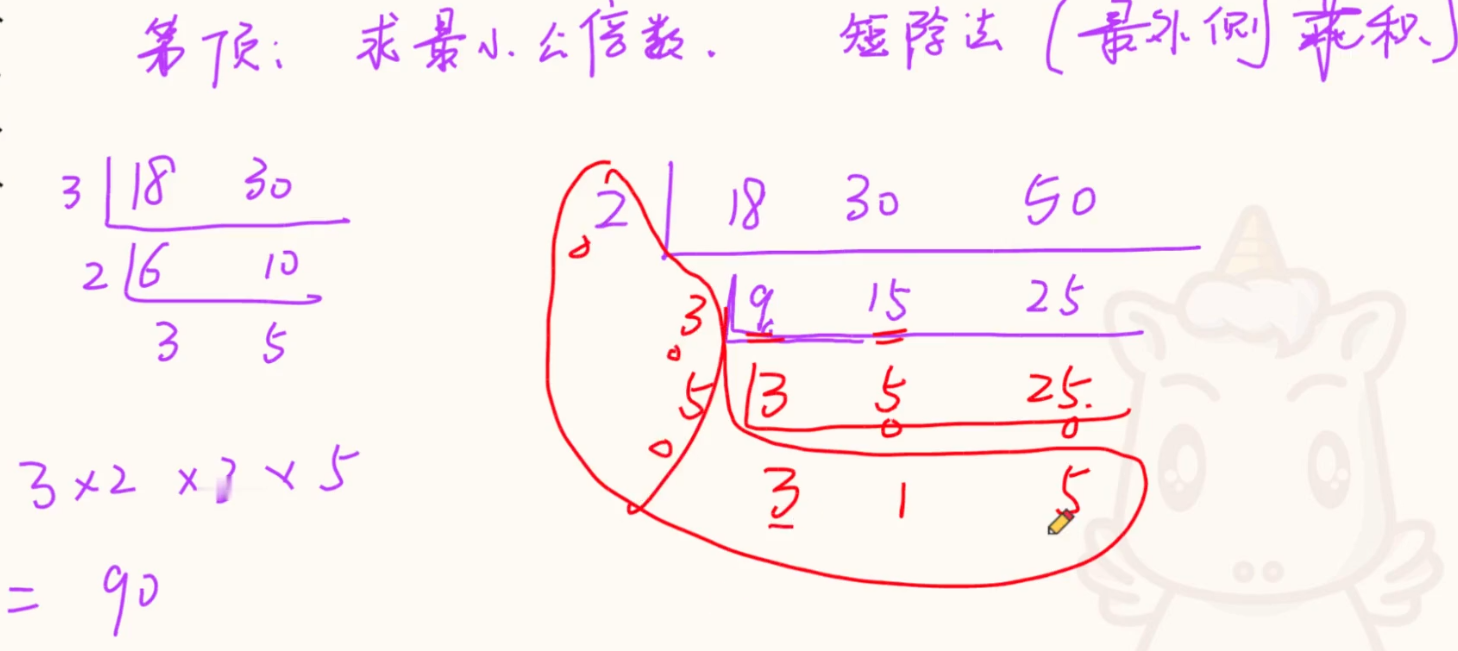 第1页: 求最小公倍数. 短除法 (最外侧乘积)
3 18 30
2 6 10
3 5
3 × 2 × 3 × 5
= 90
2 18 30 50
3 9 15 25
5 3 5 25.
3 1 5